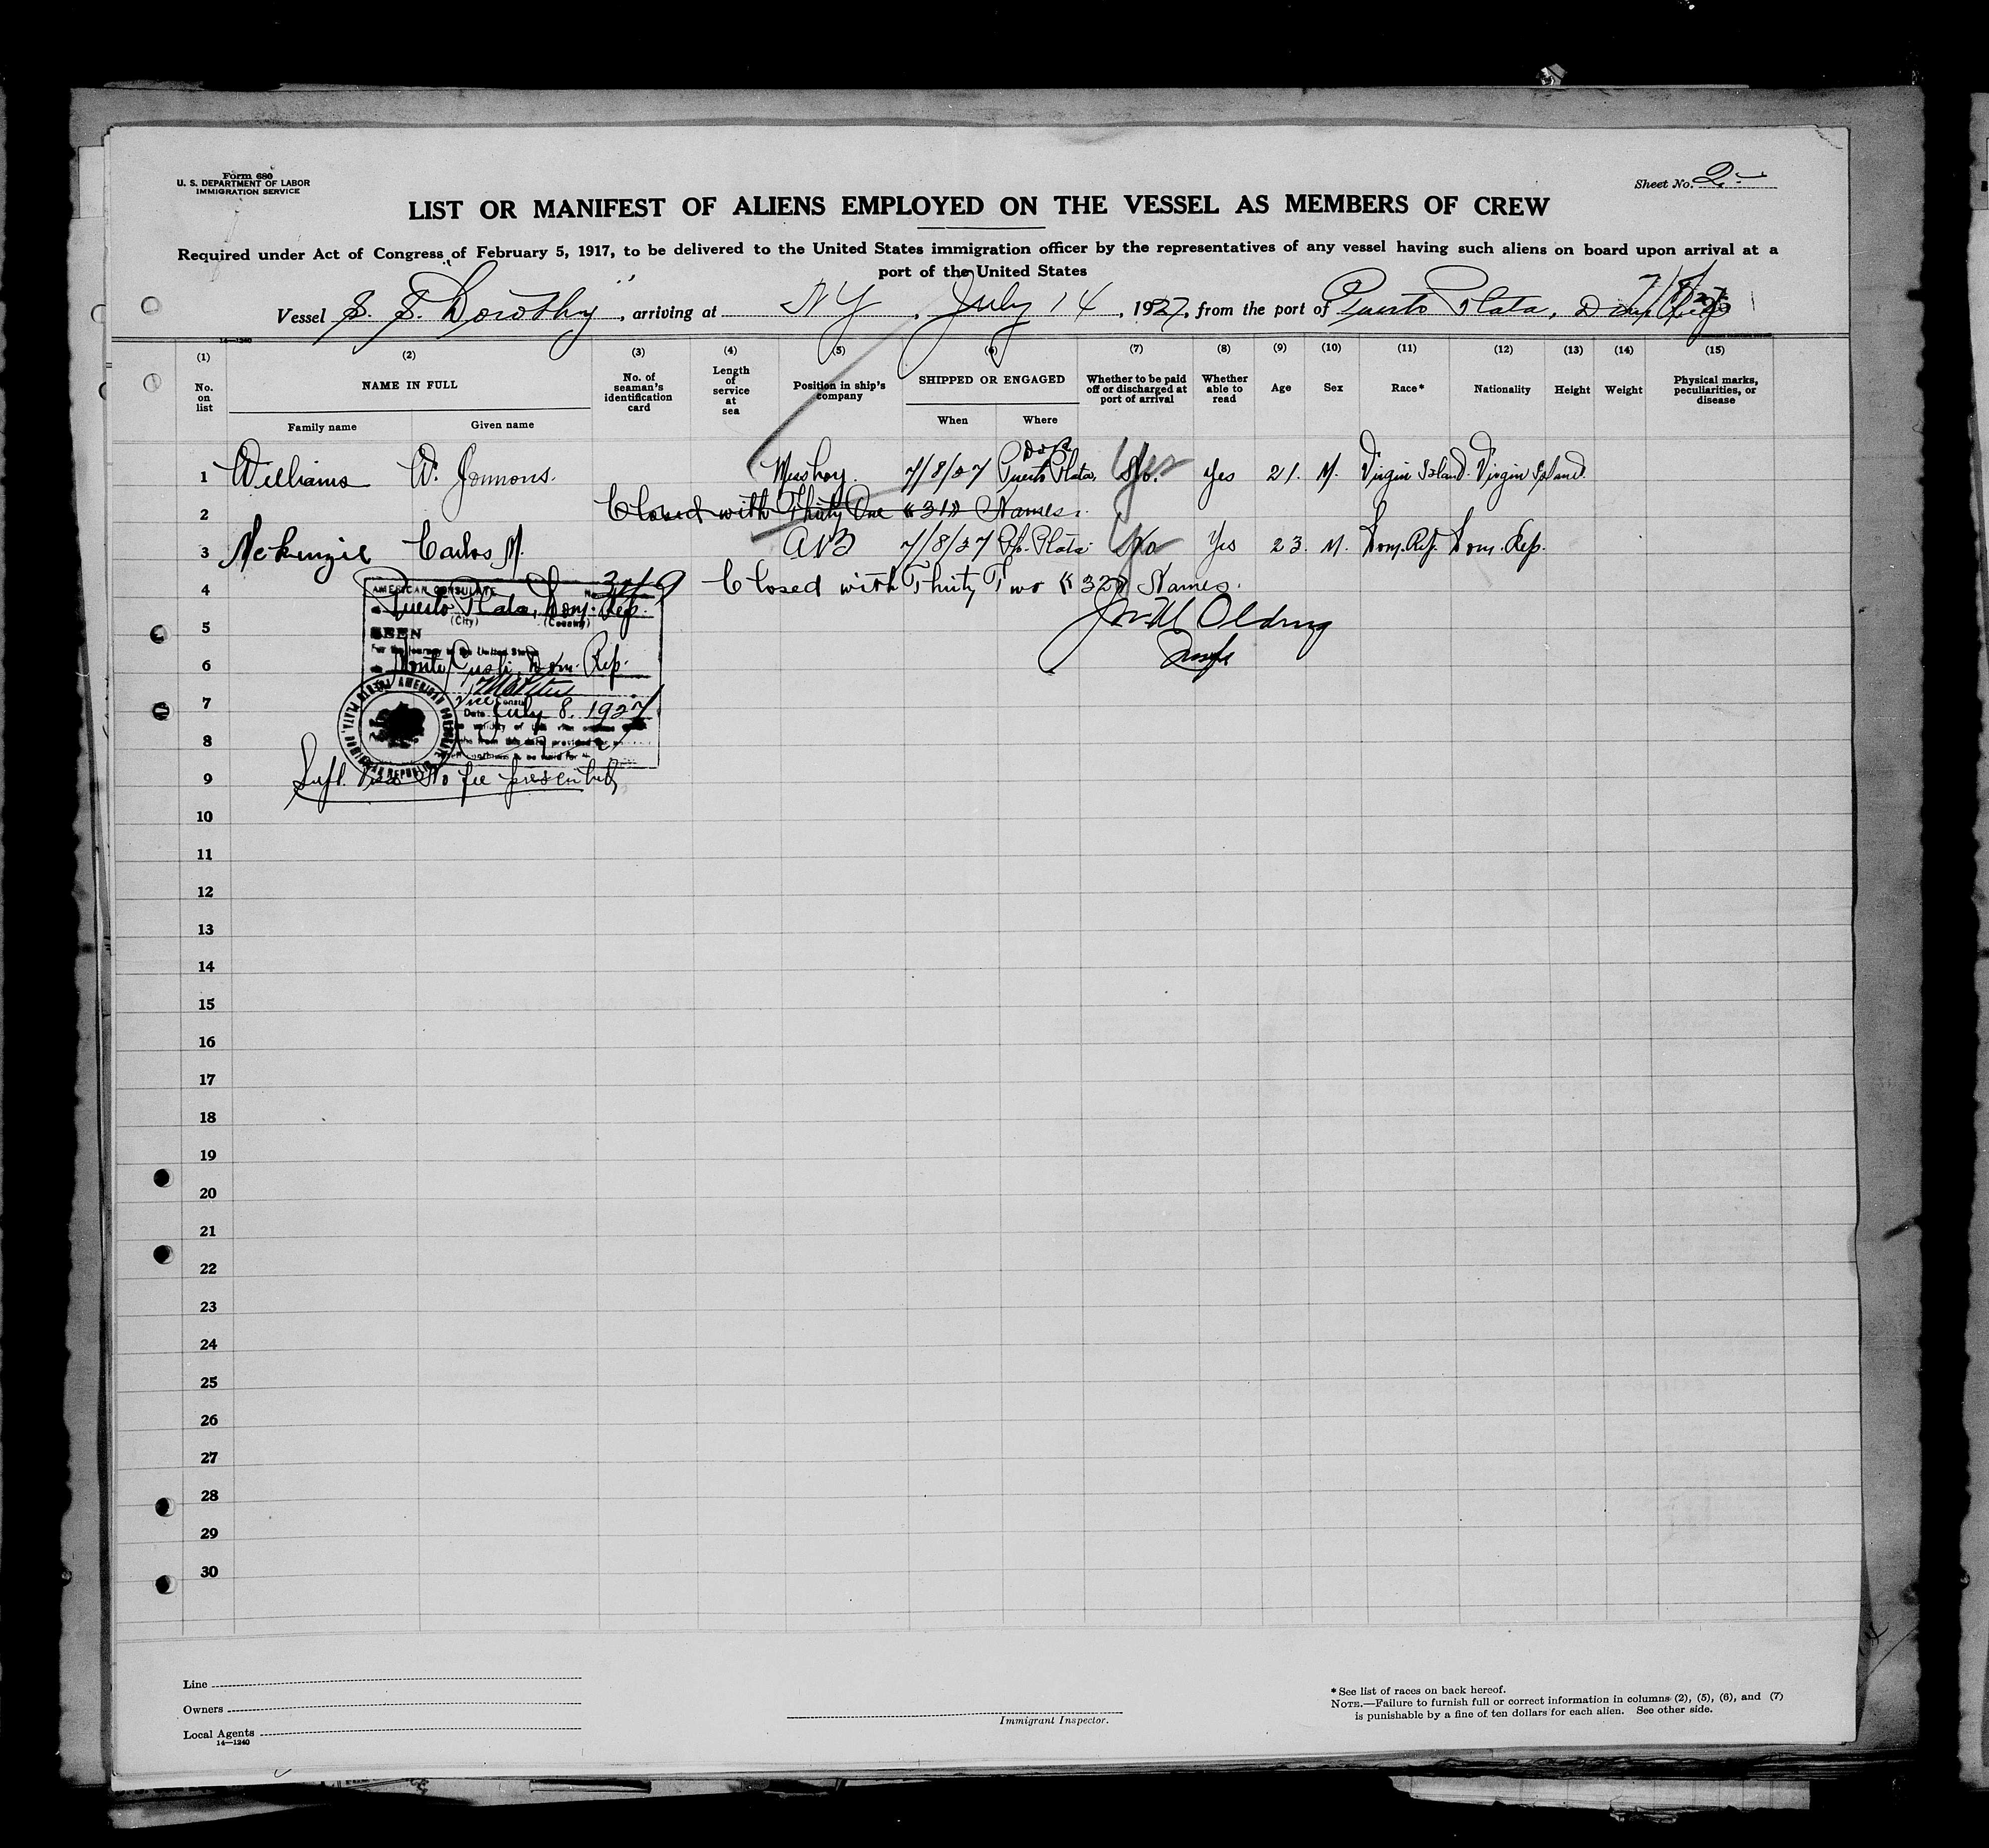 Form 680
U. S. DEPARTMENT OF LABOR
IMMIGRATION SERVICE
Sheet No. 2
LIST OR MANIFEST OF ALIENS EMPLOYED ON THE VESSEL AS MEMBERS OF CREW
Required under Act of Congress of February 5, 1917, to be delivered to the United States immigration officer by the representatives of any vessel having such aliens on board upon arrival at a
port of the United States
Vessel S. S. "Dorothy", arriving at NY, July 14, 1927, from the port of Puerto Plata,
14—1240
(1) (2) (3) (4) (5) (6) (7) (8) (9) (10) (11) (12) (13) (14) (15)
No. on list NAME IN FULL No. of seaman's identification card Length of service at sea Position in ship's company SHIPPED OR ENGAGED Whether to be paid off or discharged at port of arrival Whether able to read Age Sex Race* Nationality Height Weight Physical marks, peculiarities, or disease
Family name Given name When Where
1 Williams W. Messboy. 7/8/27 Puerto Plata, No. Yes Yes 21. M. Virgin Island. Virgin Island.
2 Closed with Thirty One "31" Names.
3 Mckenzie Carlos M. AB 7/8/27 Pto. Plata No Yes 23. M. Dom. Rep. Dom. Rep.
4 Closed with Thirty Two "32" Names.
AMERICAN CONSULATE No.
Puerto Plata, Dom. Rep.
(City) (Country)
5
SEEN
For the journey to the United States
6
Monte Cristi, Dom. Rep.
7
Vice Consul
Date July 8, 1927
8
9 Supl. Visa No fee prescribed
10
11
12
13
14
15
16
17
18
19
20
21
22
23
24
25
26
27
28
29
30
Line
Owners
Local Agents
14—1240
Immigrant Inspector.
* See list of races on back hereof.
NOTE.—Failure to furnish full or correct information in columns (2), (5), (6), and (7)
is punishable by a fine of ten dollars for each alien. See other side.